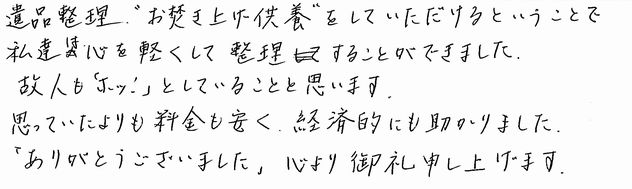 遺品整理、"お焚き上げ供養"をしていただけるということで
私達は心を軽くして整理することができました。
故人も「ホッ!」としていることと思います。
思っていたよりも料金も安く、経済的にも助かりました。
「ありがとうございました」心より御礼申し上げます。